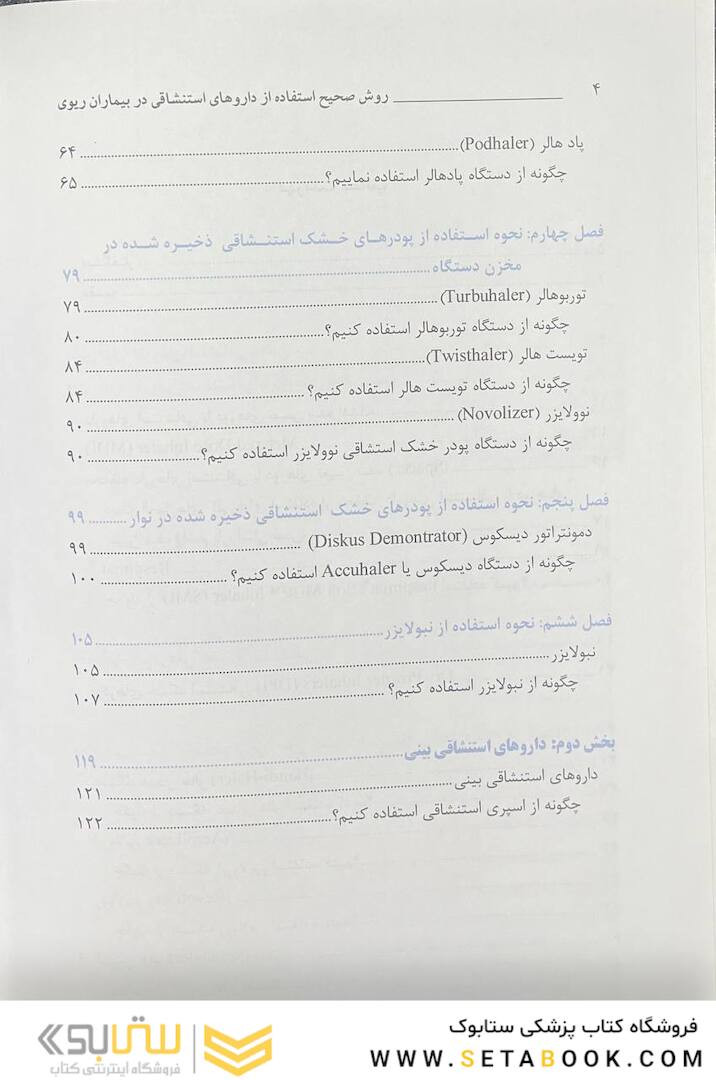 ۴ روش صحیح استفاده از داروهای استنشاقی در بیماران ریوی
پاد هالر (Podhaler) ۶۴
چگونه از دستگاه پادهالر استفاده نماییم؟ ۶۵
فصل چهارم: نحوه استفاده از پودرهای خشک استنشاقی ذخیره شده در
مخزن دستگاه ۷۹
توربوهالر (Turbuhaler) ۷۹
چگونه از دستگاه توربوهالر استفاده کنیم؟ ۸۰
تویست هالر (Twisthaler) ۸۴
چگونه از دستگاه تویست هالر استفاده کنیم؟ ۸۴
نوولایزر (Novolizer) ۹۰
چگونه از دستگاه پودر خشک استشاقی نوولایزر استفاده کنیم؟ ۹۰
فصل پنجم: نحوه استفاده از پودرهای خشک استنشاقی ذخیره شده در نوار ۹۹
دمونتراتور دیسکوس (Diskus Demontrator) ۹۹
چگونه از دستگاه دیسکوس یا Accuhaler استفاده کنیم؟ ۱۰۰
فصل ششم: نحوه استفاده از نبولایزر ۱۰۵
نبولایزر ۱۰۵
چگونه از نبولایزر استفاده کنیم؟ ۱۰۷
بخش دوم: داروهای استنشاقی بینی ۱۱۹
داروهای استنشاقی بینی ۱۲۱
چگونه از اسپری استنشاقی استفاده کنیم؟ ۱۲۲
فروشگاه کتاب پزشکی ستابوک
WWW.SETABOOK.COM
ستابوک
فروشگاه اینترنتی کتاب